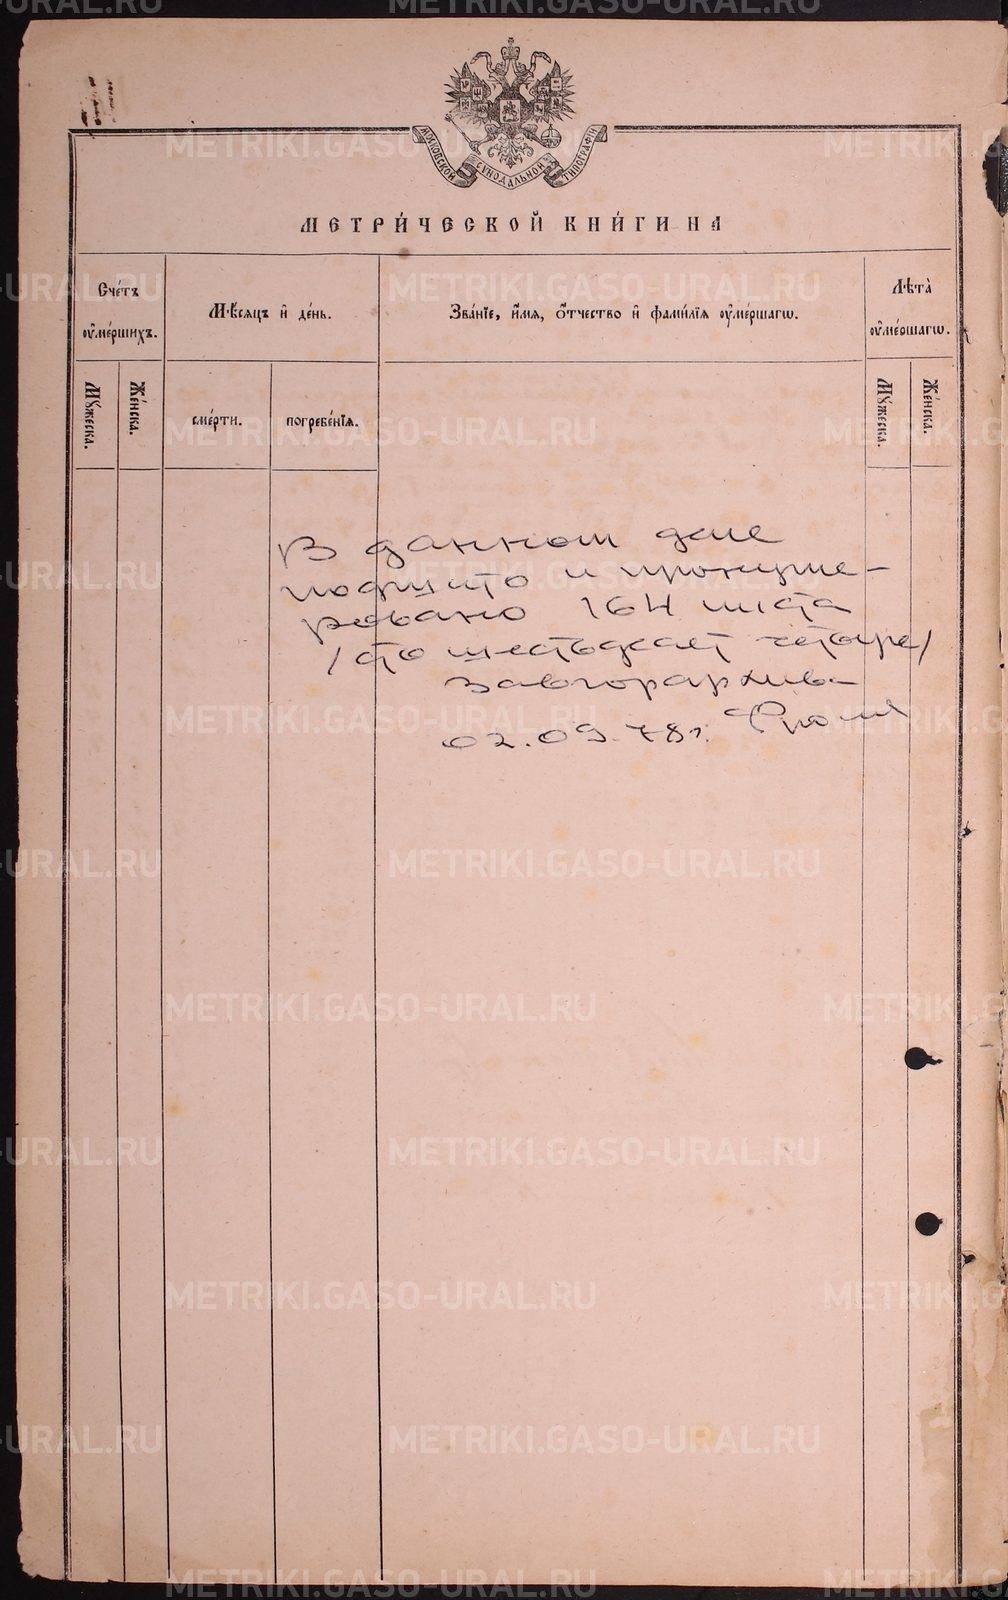 МОСКОВСКОЙ СѴНОДАЛЬНОЙ ТИПОГРАФІИ
МЕТРИ́ЧЕСКОЙ КНИ́ГИ НА
Сче́тъ ᲂу҆ме́ршихъ.
Мѣ́сяцъ и҆ де́нь.
Зва́нїе, и҆́мѧ, ѻ҆́тчество и҆ фами́лїѧ ᲂу҆ме́ршагѡ.
Лѣ́та ᲂу҆ме́ршагѡ.
Мꙋ́жеска.
Же́нска.
сме́рти.
погребе́нїѧ.
Мꙋ́жеска.
Же́нска.
В данном деле
подшито и пронуме-
ровано 164 листа
/сто шестьдесят четыре/
Завгорархив-
02.09.78г.
METRIKI.GASO-URAL.RU